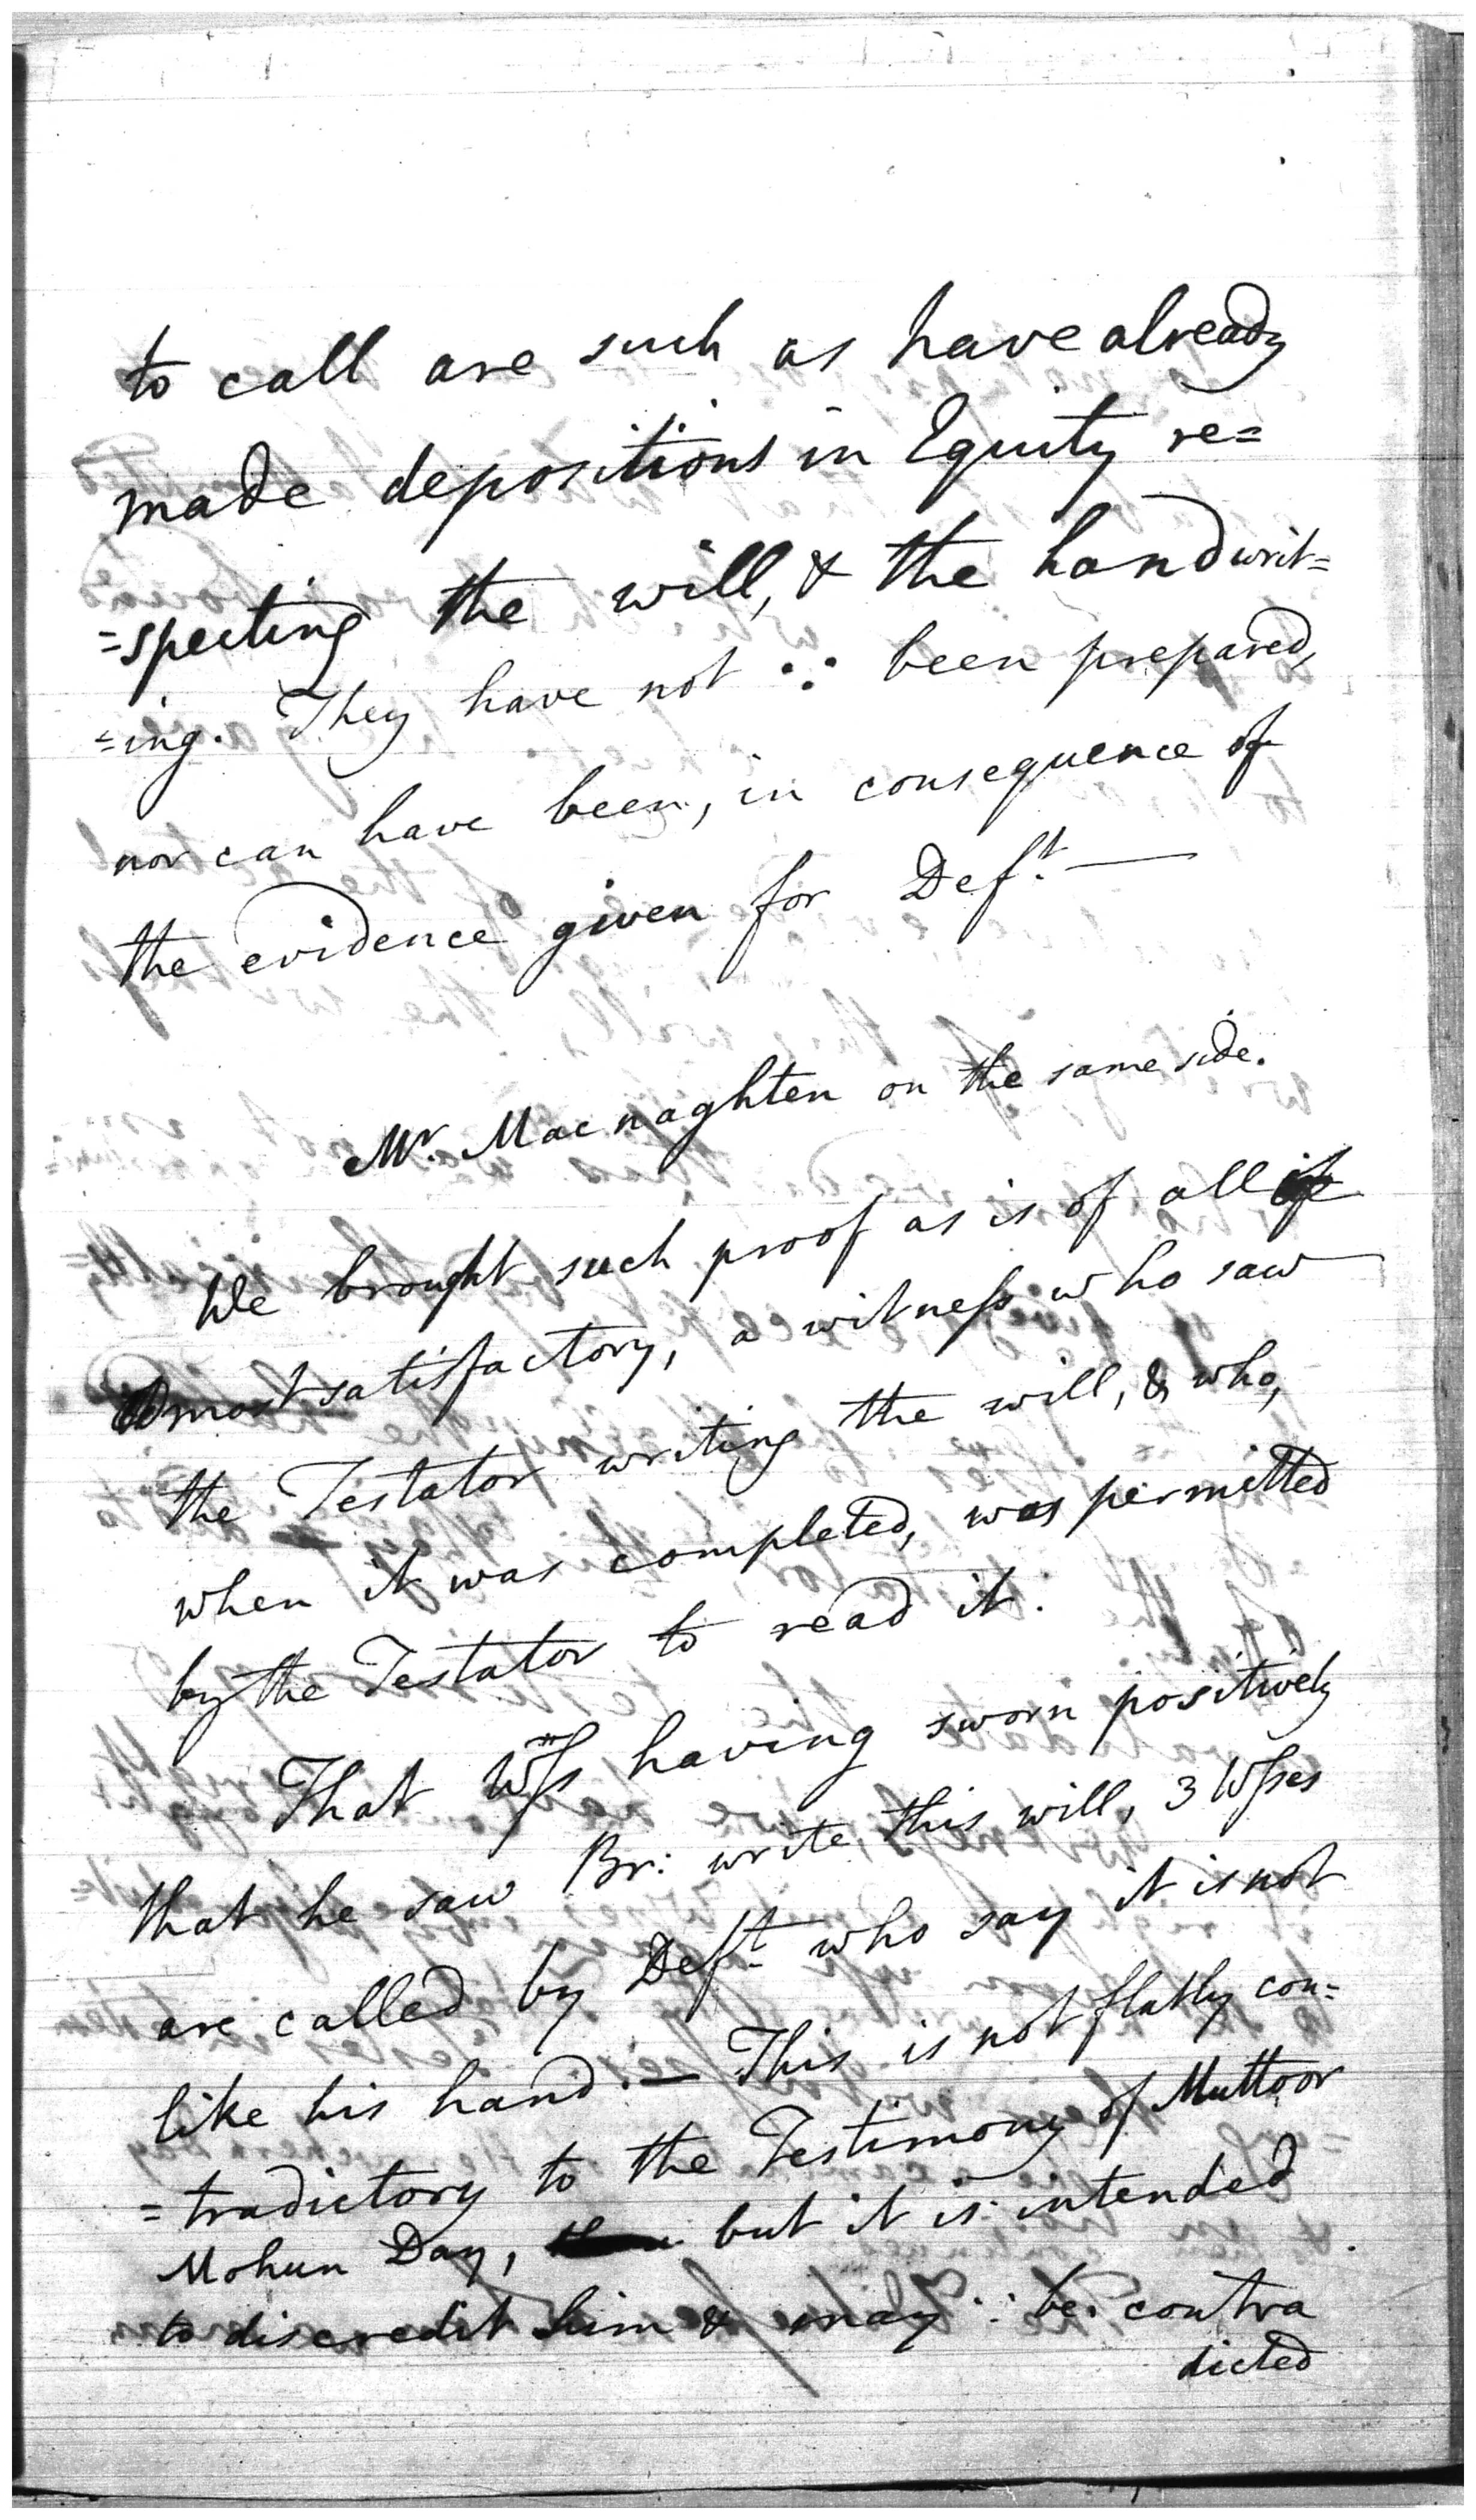 to call are such as have already
made depositions in Equity re=
=specting the will, & the handwrit=
=ing. They have not ∴ been prepared,
nor can have been, in consequence of
the evidence given for Deft. —
Mr. Macnaghten on the same side.
We brought such proof as is of all
most satisfactory, a witness who saw
the Testator writing the will, & who,
when it was completed, was permitted
by the Testator to read it.
That Wss having sworn positively
that he saw Br: write this will, 3 Wsses
are called by Deft. who say it is not
like his hand. — This is not flatly con=
=tradictory to the Testimony of Muttoor
Mohun Day, but it is intended
to discredit him & may ∴ be contra
dicted